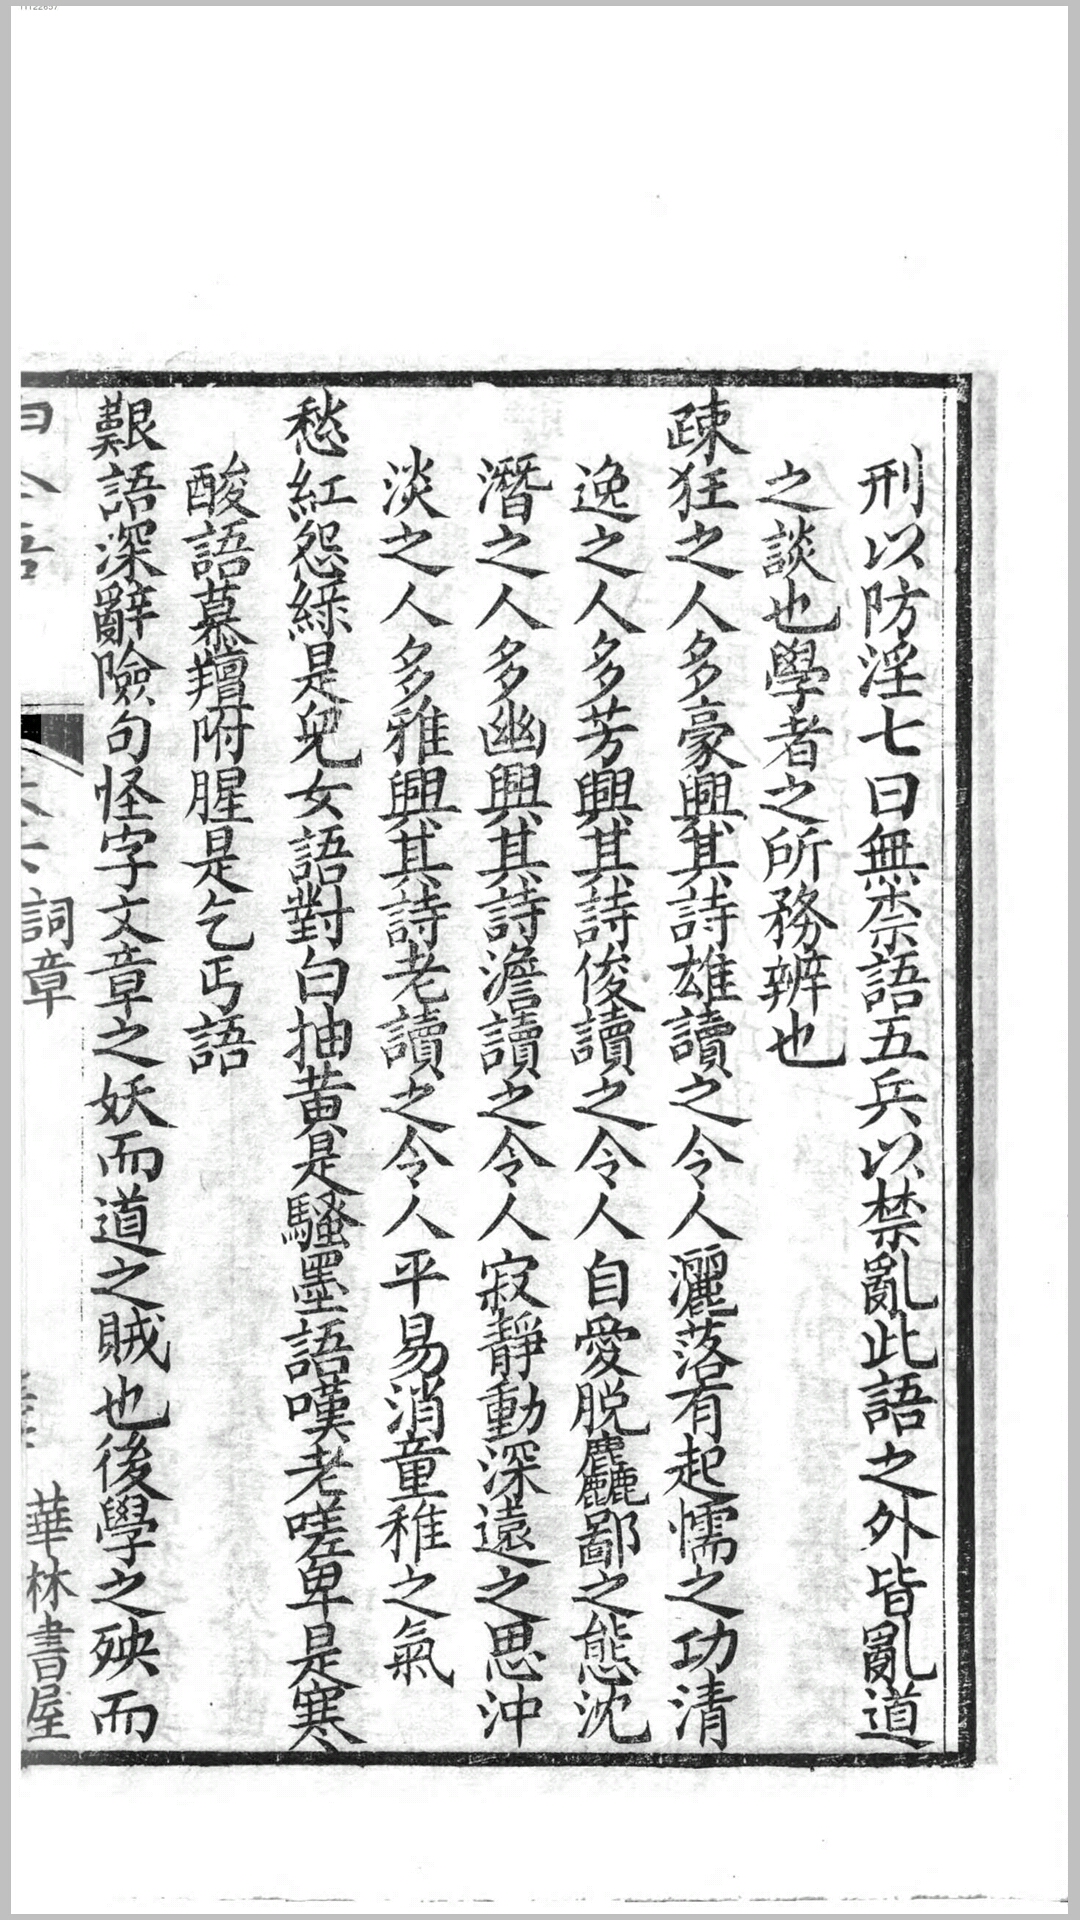 刑以防淫七曰無柰語五兵以禁亂此語之外皆亂道
之談也學者之所務辨也
疎狂之人多豪興其詩雄讀之令人灑落有起懦之功清
逸之人多芳興其詩俊讀之令人自愛脫麤鄙之態沈
潛之人多幽興其詩澹讀之令人寂靜動深遠之思沖
淡之人多雅興其詩老讀之令人平易消童稚之氣
愁紅怨綠是兒女語對白抽黃是騷墨語嘆老嗟卑是寒
酸語慕羶附腥是乞丐語
艱語深辭險句怪字文章之妖而道之賊也後學之殃而
詞章
華林書屋